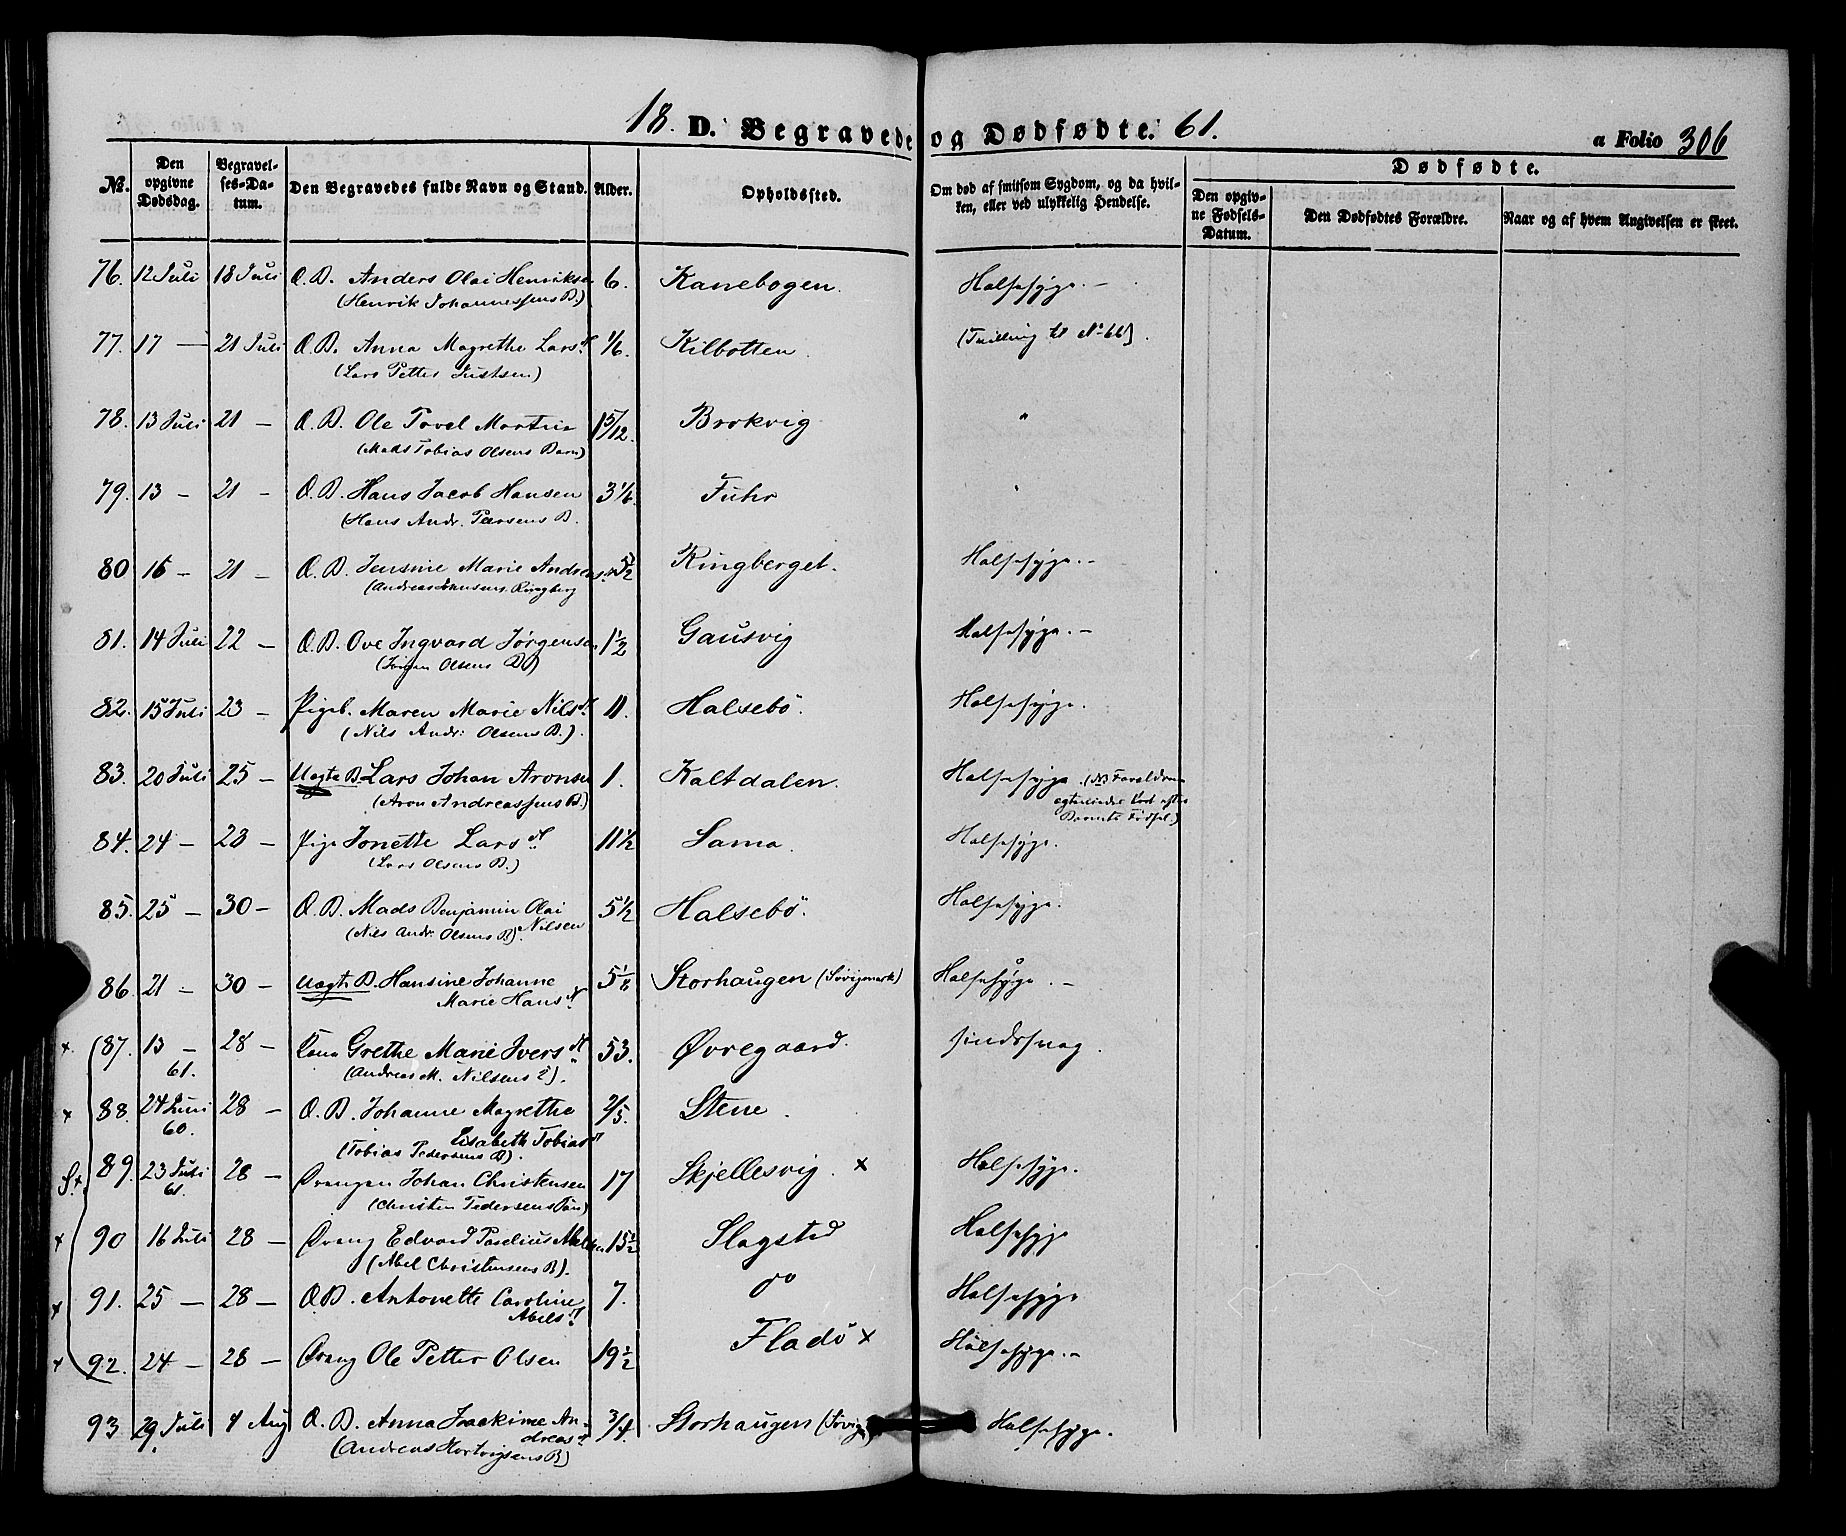 18. D. Begravede og Dødfødte. 61.
a Folio 306
№.
Den opgivne Dødsdag.
Begravelses-Datum.
Den Begravedes fulde Navn og Stand.
Alder.
Opholdssted.
Om død af smitsom Sygdom, og da hvilken, eller ved ulykkelig Hendelse.
Dødfødte.
Den opgivne Fødsels-Datum.
Den Dødfødtes Forældre.
Naar og af hvem Angivelsen er skeet.
76. 12 Juli 18 Juli Æ. B. Anders Olai Henriksen 6. Kanebogen. Halsesyge. –
(Henrik Johannessens B.)
77. 17 — 21 Juli Æ. B. Anna Magrethe Lars d. 1/6. Kilbotten. (Tvilling til No 66).
(Lars Petter Justsen)
78. 13 Juli 21 – Æ. B. Ole Povel Martin 1 5/12. Brokvig "
(Mads Tobias Olsens Barn)
79. 13 – 21 – Æ. B. Hans Jacob Hansen 3 1/6. Fuhr "
(Hans Andr. Peersens B.
80 16 – 21 – Æ. B. Jensine Marie Andreas d. 5 1/2 Ringberget. Halsesyge. –
(Andreas Hansens Ringberg
81. 14 Juli 22 – Æ. B. Ove Ingvard Jørgensen 1 1/2 Gausvig Halsesyge. –
(Jørgen Olsens B)
82. 15 Juli 23 – Pigeb. Maren Marie Nils d. 11. Halsebö. Halsesyge.
(Nils Andr: Olsens B.).
83. 20 Juli 25 – Uægte B. Lars Johan Aronsen 1. Kaltdalen. Halsesyge. (NB Forældrene
(Aron Andreassens B.) egteviedes kort efter
Barnets Fødsel.)
84. 24 – 28 – Pige Jonette Lars d. 11 1/2 Sama. Halsesyge.
(Lars Olsens B.)
85. 25 – 30 – Æ. B. Mads Benjamin Olai 5 1/2 Halsebö. Halsesyge.
(Nils Andr. Olsens B). Nilsen
86. 21 – 30 – Uægte B. Hansine Johanne 5 1/6 Storhaugen (Sørvigmark) Halsesyge. –
Marie Hans d.
× 87. 13 – 28 – Kone Grethe Marie Ivers d. 53. Øvregaard. sindssvag.
61. (Andreas M. Nilsens ).
× 88. 24 Juni 28 – Æ. B. Johanne Magrethe 2/5. Stene.
60. Elisabeth Tobias d
(Tobias Pedersens B).
S.×. 89. 23 Juli 28 – Drengen Johan Christensen 17 Skjellesvig. × Halsesyge.
61. (Christen Pedersens Søn)
× 90 16 Juli 28 – Dreng Edvard Paselius Abelsen 15 1/2 Slagstad Halsesyge
(Abel Christensens B).
× 91. 25 – 28 – Æ B. Antonette Caroline 7. do Halsesyge
Abels d.
× 92. 24 – 28 – Dreng Ole Petter Olsen 19 1/2 Fladö × Halsesyge. –
93 29 Juli 4 Aug Æ. B. Anna Joakime An- 3/4. Storhaugen (Sørvig) Halsesyge.
dreas d
(Andreas Hartvigsens B)